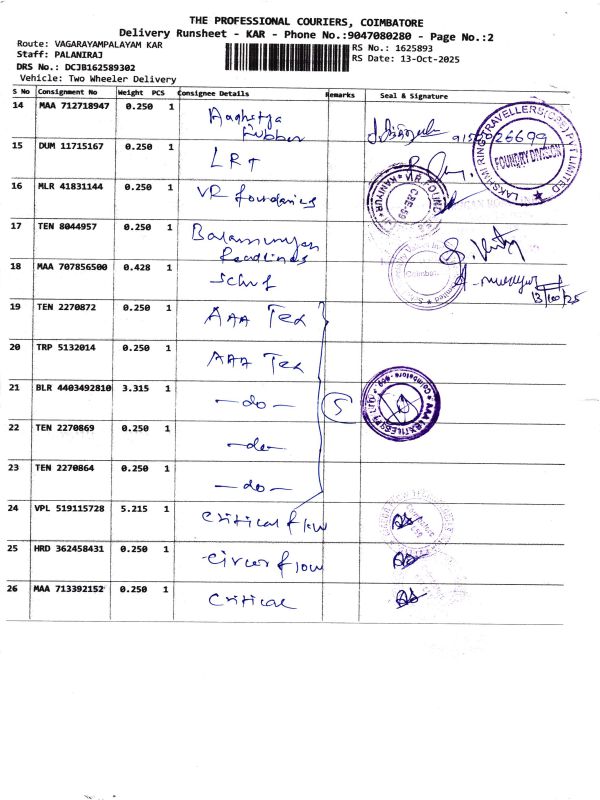 THE PROFESSIONAL COURIERS, COIMBATORE
Delivery Runsheet - KAR - Phone No.:9047080280 - Page No.:2
Route: VAGARAYAMPALAYAM KAR
RS No.: 1625893
Staff: PALANIRAJ
RS Date: 13-Oct-2025
DRS No.: DCJB162589302
Vehicle: Two Wheeler Delivery
S No Consignment No Weight PCS Consignee Details Remarks Seal & Signature
14 MAA 712718947 0.250 1
Rubber
15 DUM 11715167 0.250 1 LRT
16 MLR 41831144 0.250 1 VR foundries
17 TEN 8044957 0.250 1
18 MAA 707856500 0.428 1
13/10/25
19 TEN 2270872 0.250 1 AAA Tex
20 TRP 5132014 0.250 1 AAA Tex
21 BLR 4403492810 3.315 1 -do- 5
22 TEN 2270869 0.250 1 -do-
23 TEN 2270864 0.250 1 -do-
24 VPL 519115728 5.215 1 Critical flow
25 HRD 362458431 0.250 1 Circor flow
26 MAA 713392152 0.250 1 Critical
LAKSHMI RING TRAVELLERS (CBE) PVT LIMITED
FOUNDRY DIVISION
CBE-59
AAA TEXTILES (P) LTD
Coimbatore